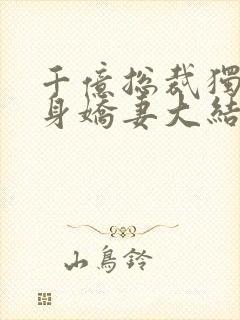 千億總裁獨
身嬌妻大結
山鳥鈴